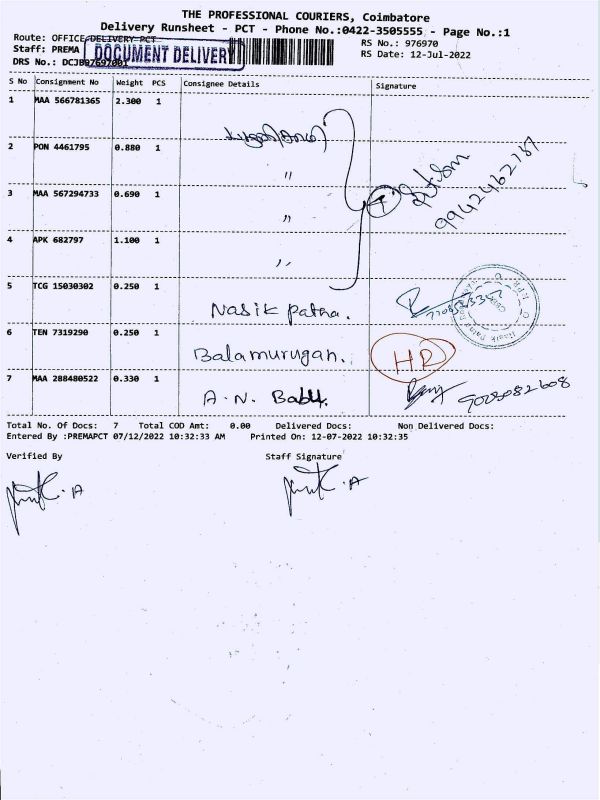 THE PROFESSIONAL COURIERS, Coimbatore
Delivery Runsheet - PCT - Phone No.:0422-3505555 - Page No.:1
Route: OFFICE-DELIVERY PCT
RS No.: 976970
Staff: PREMA
DOCUMENT DELIVERY
RS Date: 12-Jul-2022
DRS No.:
S No Consignment No Weight PCS Consignee Details Signature
1 MAA 566781365 2.300 1
2 PON 4461795 0.880 1
"
3 MAA 567294733 0.690 1
"
4 APK 682797 1.100 1
"
9942462787
5 TCG 15030302 0.250 1
Nasik Patha.
6 TEN 7319290 0.250 1
Balamurugan. HR
7 MAA 288480522 0.330 1
A. N. Babu.
Total No. Of Docs: 7 Total COD Amt: 0.00 Delivered Docs: Non Delivered Docs:
Entered By :PREMAPCT 07/12/2022 10:32:33 AM Printed On: 12-07-2022 10:32:35
Verified By Staff Signature